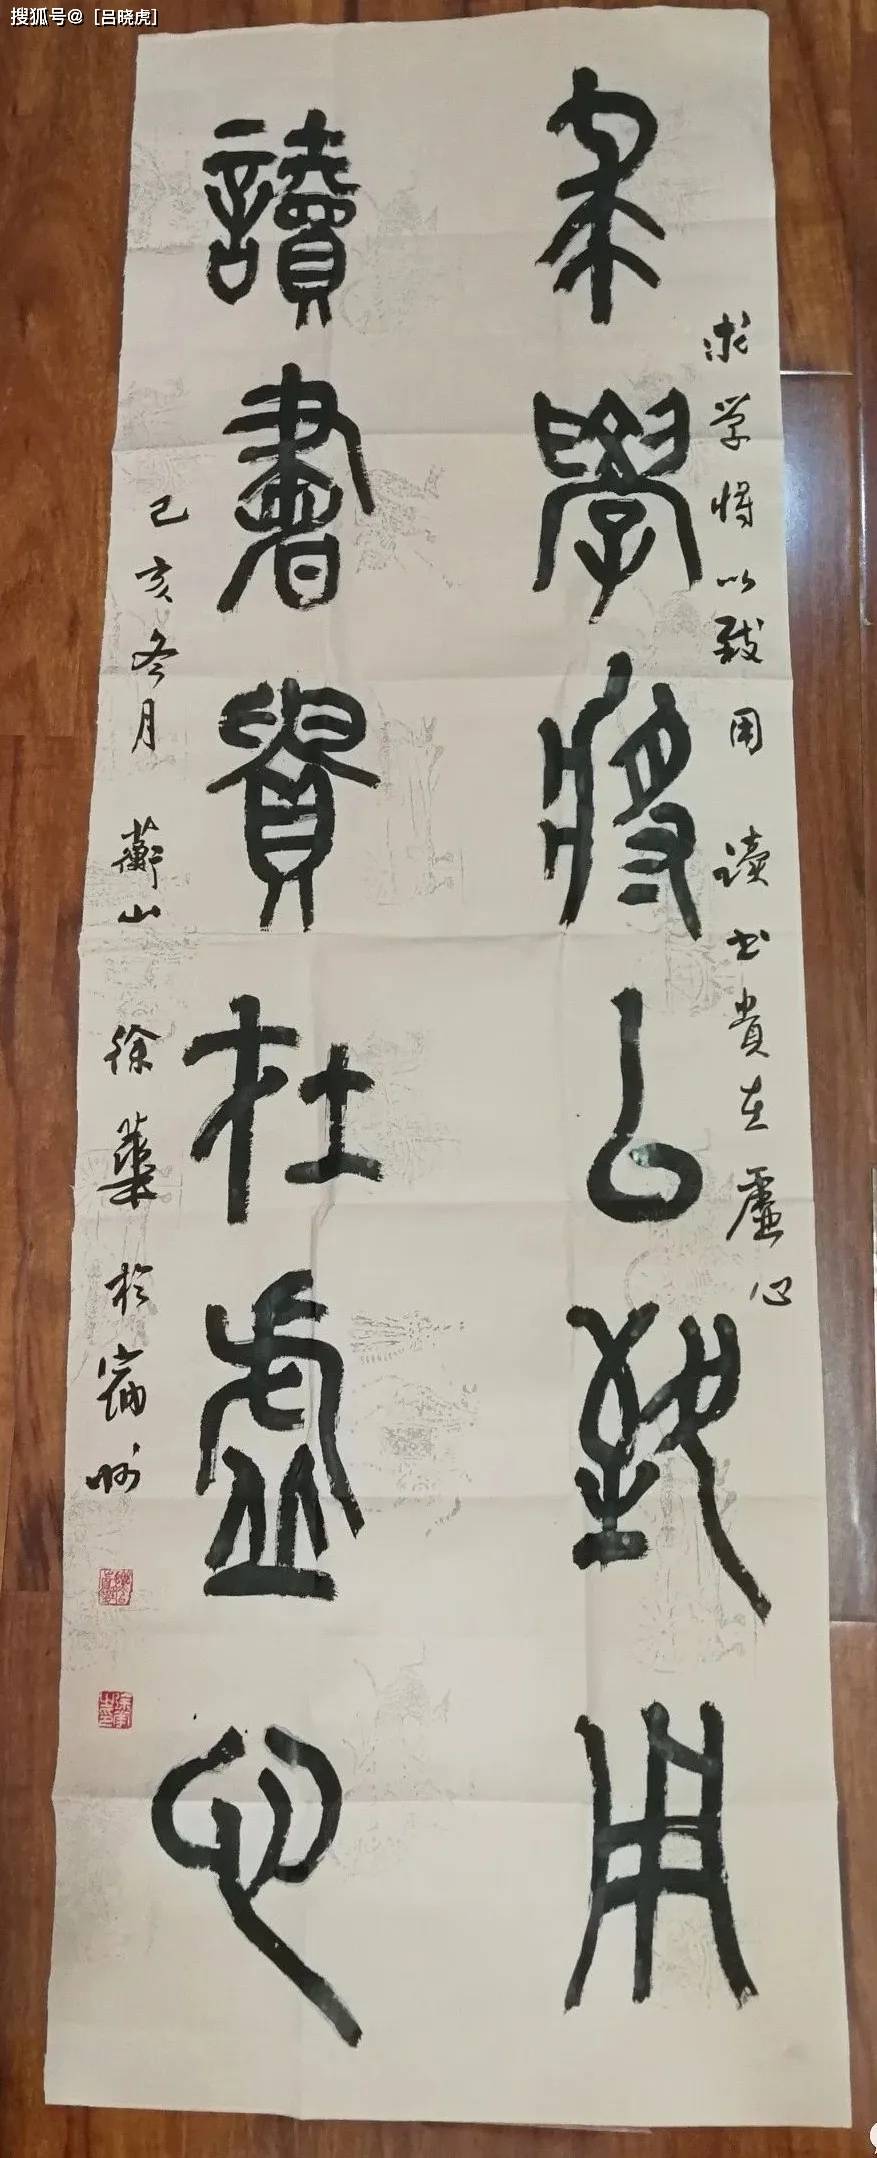 搜狐号@［吕晓虎］
求學將以致用
讀書貴在虛心
求学将以致用 读书贵在虚心
己亥冬月 蘄山 徐華於宿州